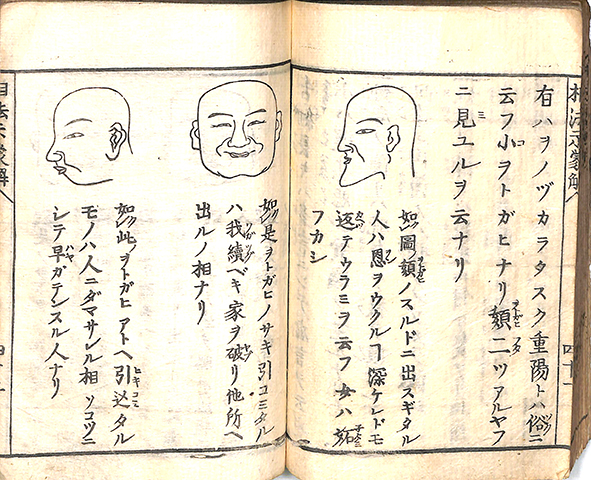 有ハヲノヅカラタスク重陽トハ俗ニ
云フ小ヲトガヒナリ頦二ツアルヤフ
ニ見ユルヲ云ナリ
如圖頦ノスルドニ出スギタル
人ハ恩ヲウクルヿ深ケレドモ
返テウラミヲ云フ女ハ妬
フカシ
如是ヲトガヒノサキ引コミタル
ハ我續ベキ家ヲ破リ他所ヘ
出ルノ相ナリ
如此ヲトガヒアトヘ引込タル
モノハ人ニダマサレル相ソコツニ
シテ早ガテンスル人ナリ